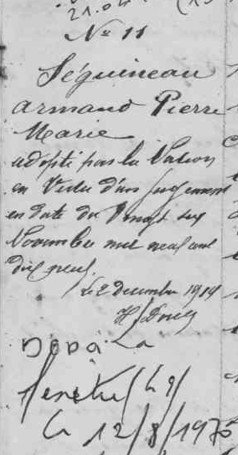 N° 11
Séguineau
Armand Pierre
Marie
adopté par la Nation
en vertu d'un jugement
en date du Vingt six
Novembre mil neuf cent
dix neuf.
Le 2 décembre 1919
DCD à La
le 12/8/1975